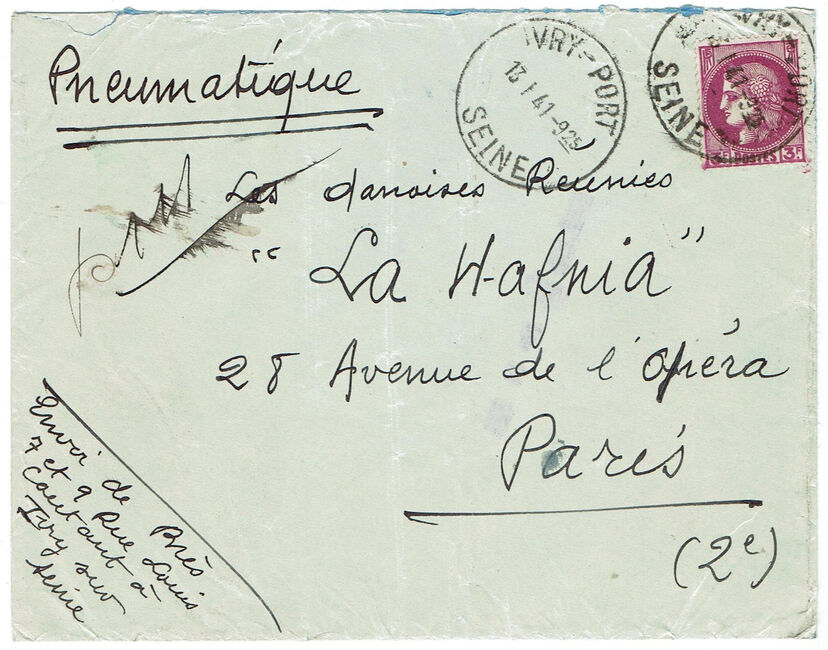 Pneumatique
IVRY-PORT
13-1 41-9 25
SEINE
IVRY-PORT
41-9 25
SEINE
POSTES 3F
Les danoises Reunies
"La Hafnia"
28 Avenue de l'Opéra
Paris
(2e)
Envoi de Brès
7 et 9 Rue Louis
à
Ivry sur
Seine